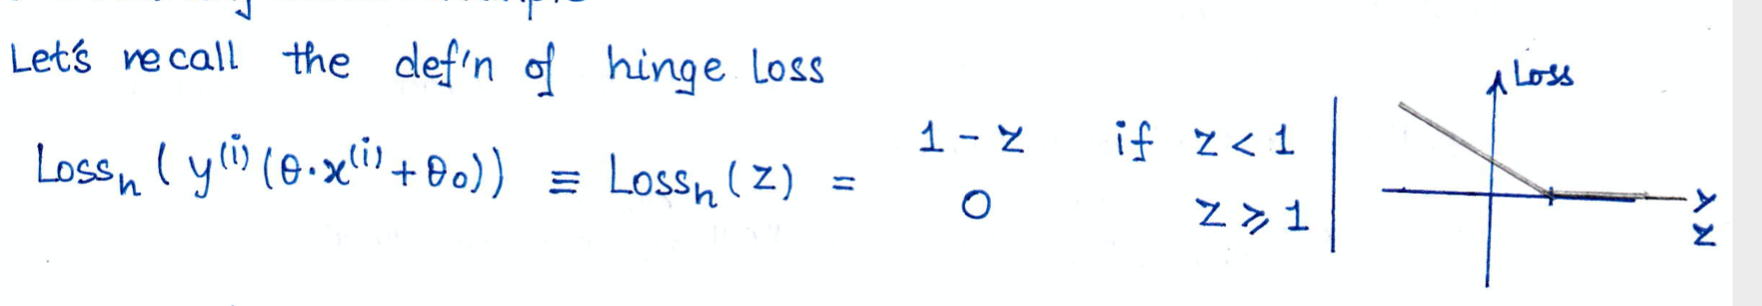 Let's recall the def'n of hinge loss
Loss
Loss_h ( y^(i) (θ·x^(i) + θ_0)) ≡ Loss_h (z) =
1 - z if z < 1
0 z ⩾ 1
z